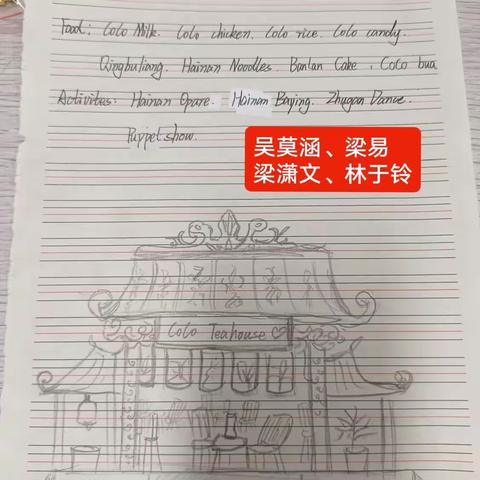 Food: CoCo Milk. CoCo chicken. CoCo rice. CoCo candy.
Qingbuliang. Hainan Noodles. Banlan Cake, CoCo bua
Activities: Hainan Opare. Hainan Bajing. Zhugan Dance.
Puppet show.
吴莫涵、梁易
梁潇文、林于铃
CoCo Teahouse